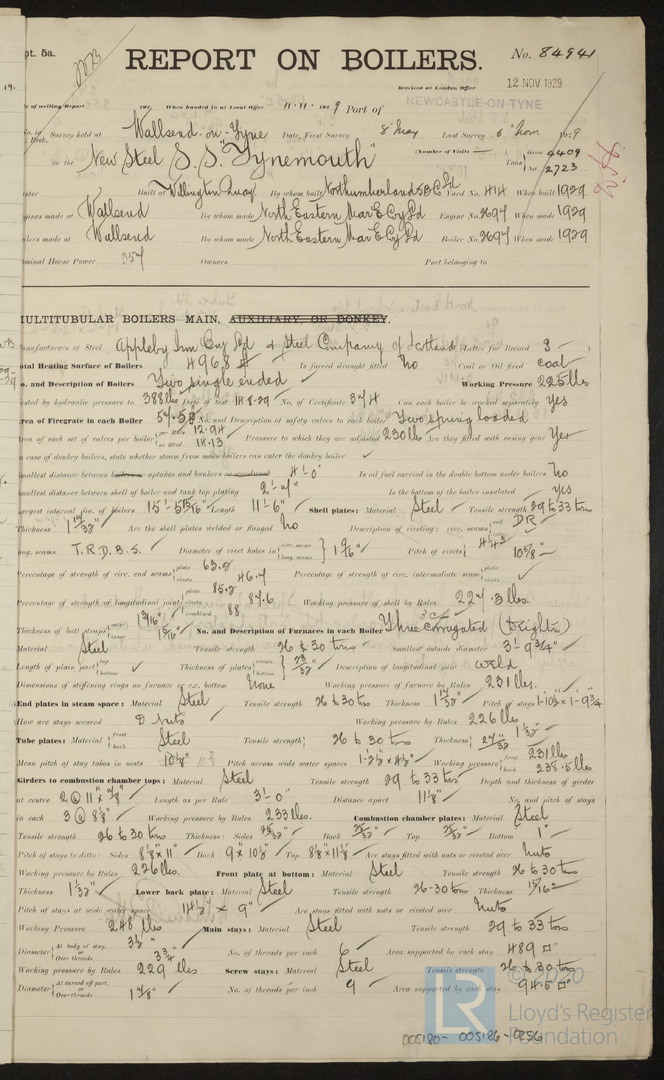 pt. 5a.
REPORT ON BOILERS.
No. 84941
Received at London Office
12 NOV 1929
NEWCASTLE-ON-TYNE
19.
of writing Report 192 When handed in at Local Office 11.11.1929 Port of
No. in Survey held at Wallsend-on-Tyne Date, First Survey 8 May Last Survey 6 Nov 1929
Book.
on the New Steel S.S. "Tynemouth" (Number of Visits Tons Gross 4409 Net 2723
Built at Willington Quay By whom built Northumberland S B C Ld Yard No. 414 When built 1929
gines made at Wallsend By whom made North Eastern Mar E Cy Ld Engine No. 2697 When made 1929
ilers made at Wallsend By whom made North Eastern Mar E Cy Ld Boiler No. 2697 When made 1929
minal Horse Power 357 Owners Port belonging to
MULTITUBULAR BOILERS MAIN, AUXILIARY, OR DONKEY.
anufacturers of Steel Appleby Iron Coy Ld & Steel Company of Scotland (Letter for Record S
Total Heating Surface of Boilers 4968 ft Is forced draught fitted No Coal or Oil fired coal
No. and Description of Boilers Two single ended Working Pressure 225 lbs
ested by hydraulic pressure to 388 lbs Date of test 14.8.29 No. of Certificate 374 Can each boiler be worked separately Yes
Area of Firegrate in each Boiler No. and Description of safety valves to each boiler Two spring loaded
Area of each set of valves per boiler 12.94 14.13 Pressure to which they are adjusted 230 lbs Are they fitted with easing gear Yes
n case of donkey boilers, state whether steam from main boilers can enter the donkey boiler ✓
mallest distance between boilers or uptakes and bunkers or woodwork 4'-0" Is oil fuel carried in the double bottom under boilers No
mallest distance between shell of boiler and tank top plating Is the bottom of the boiler insulated yes
argest internal dia. of boilers Length 11'-6" Shell plates: Material Steel Tensile strength 29 to 33 tons
Thickness Are the shell plates welded or flanged No Description of riveting: circ. seams end DR
ong. seams T.R.D.B.S. Diameter of rivet holes in circ. seams long. seams 1 9/16" Pitch of rivets 10 5/8"
Percentage of strength of circ. end seams plate 63.2 rivets 46.7 Percentage of strength of circ. intermediate seam plate rivets
Percentage of strength of longitudinal joint plate 85.2 rivets 87.6 combined 88 Working pressure of shell by Rules 227.3 lbs
Thickness of butt straps outer inner 1 5/16" No. and Description of Furnaces in each Boiler Three corrugated (Deighton)
Material Steel Tensile strength 26 to 30 tons Smallest outside diameter 3'-9 3/4"
Length of plain part top bottom Thickness of plates crown bottom 23/32" Description of longitudinal joint weld
Dimensions of stiffening rings on furnace or c.c. bottom None Working pressure of furnace by Rules 231 lbs.
End plates in steam space: Material Steel Tensile strength 26 to 30 tons Thickness Pitch of stays 1'-10 1/2" x 1'-9 3/4
How are stays secured D nuts Working pressure by Rules 226 lbs
Tube plates: Material front back Steel Tensile strength 26 to 30 tons Thickness
Mean pitch of stay tubes in nests 10 1/8" Pitch across wide water spaces Working pressure front 231 lbs back 238.5 lbs
Girders to combustion chamber tops: Material Steel Tensile strength 29 to 33 tons Depth and thickness of girder
at centre 2 @ 11" x 7/8" Length as per Rule 3'-0" Distance apart 11 1/8" No. and pitch of stays
in each 3 @ 8 1/8" Working pressure by Rules 233 lbs. Combustion chamber plates: Material Steel
Tensile strength 26 to 30 tons Thickness: Sides 25/32" Back Top 25/32" Bottom 1"
Pitch of stays to ditto: Sides 8 1/8" x 11" Back 9" x 10 1/2" Top 8 1/8" x 11 1/8" Are stays fitted with nuts or riveted over Nuts
Working pressure by Rules 226 lbs. Front plate at bottom: Material Steel Tensile strength 26 to 30 tons
Thickness 1 1/32" Lower back plate: Material Steel Tensile strength 26-30 tons Thickness 15/16"
Pitch of stays at wide water space 14 1/2" x 9" Are stays fitted with nuts or riveted over Nuts
Working Pressure 248 lbs Main stays: Material Steel Tensile strength 29 to 33 tons
Diameter At body of stay, or Over threads 3 1/2" 3 3/4" No. of threads per inch 6 Area supported by each stay 489 □"
Working pressure by Rules 229 lbs Screw stays: Material Steel Tensile strength 26 to 30 tons
Diameter At turned off part, or Over threads 1 7/8" No. of threads per inch 9 Area supported by each stay 94.5 □"
© 2020
LR Lloyd's Register
Foundation
005180-005186-0256